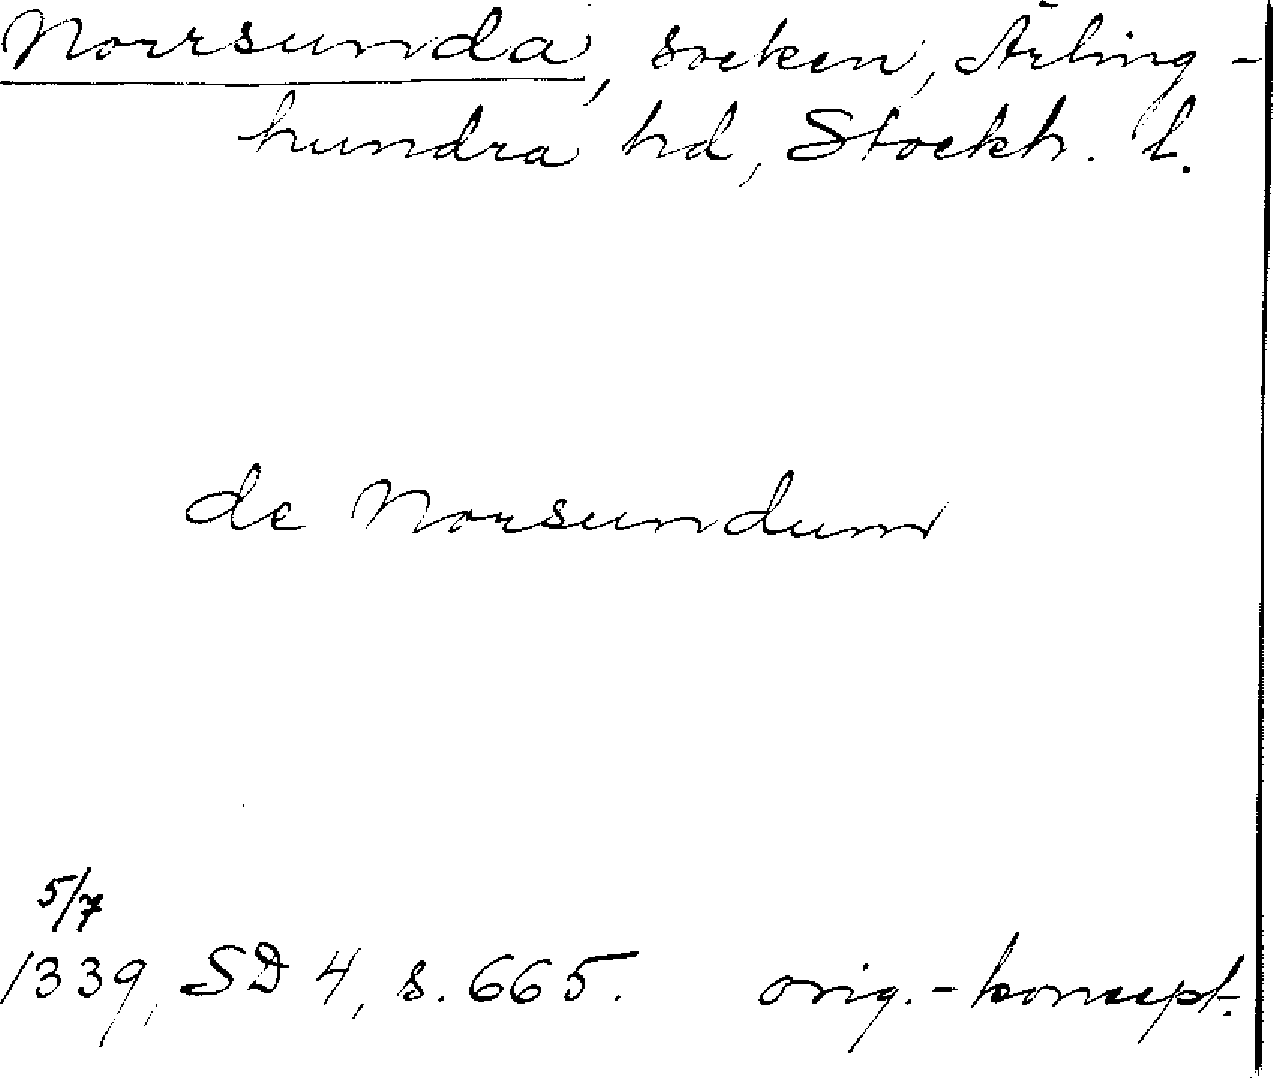 Norrsunda, socken, Ärling-
hundra hd, Stockh. l.
de Norsundum
5/7
1339, SD 4, s. 665. orig.-koncept.